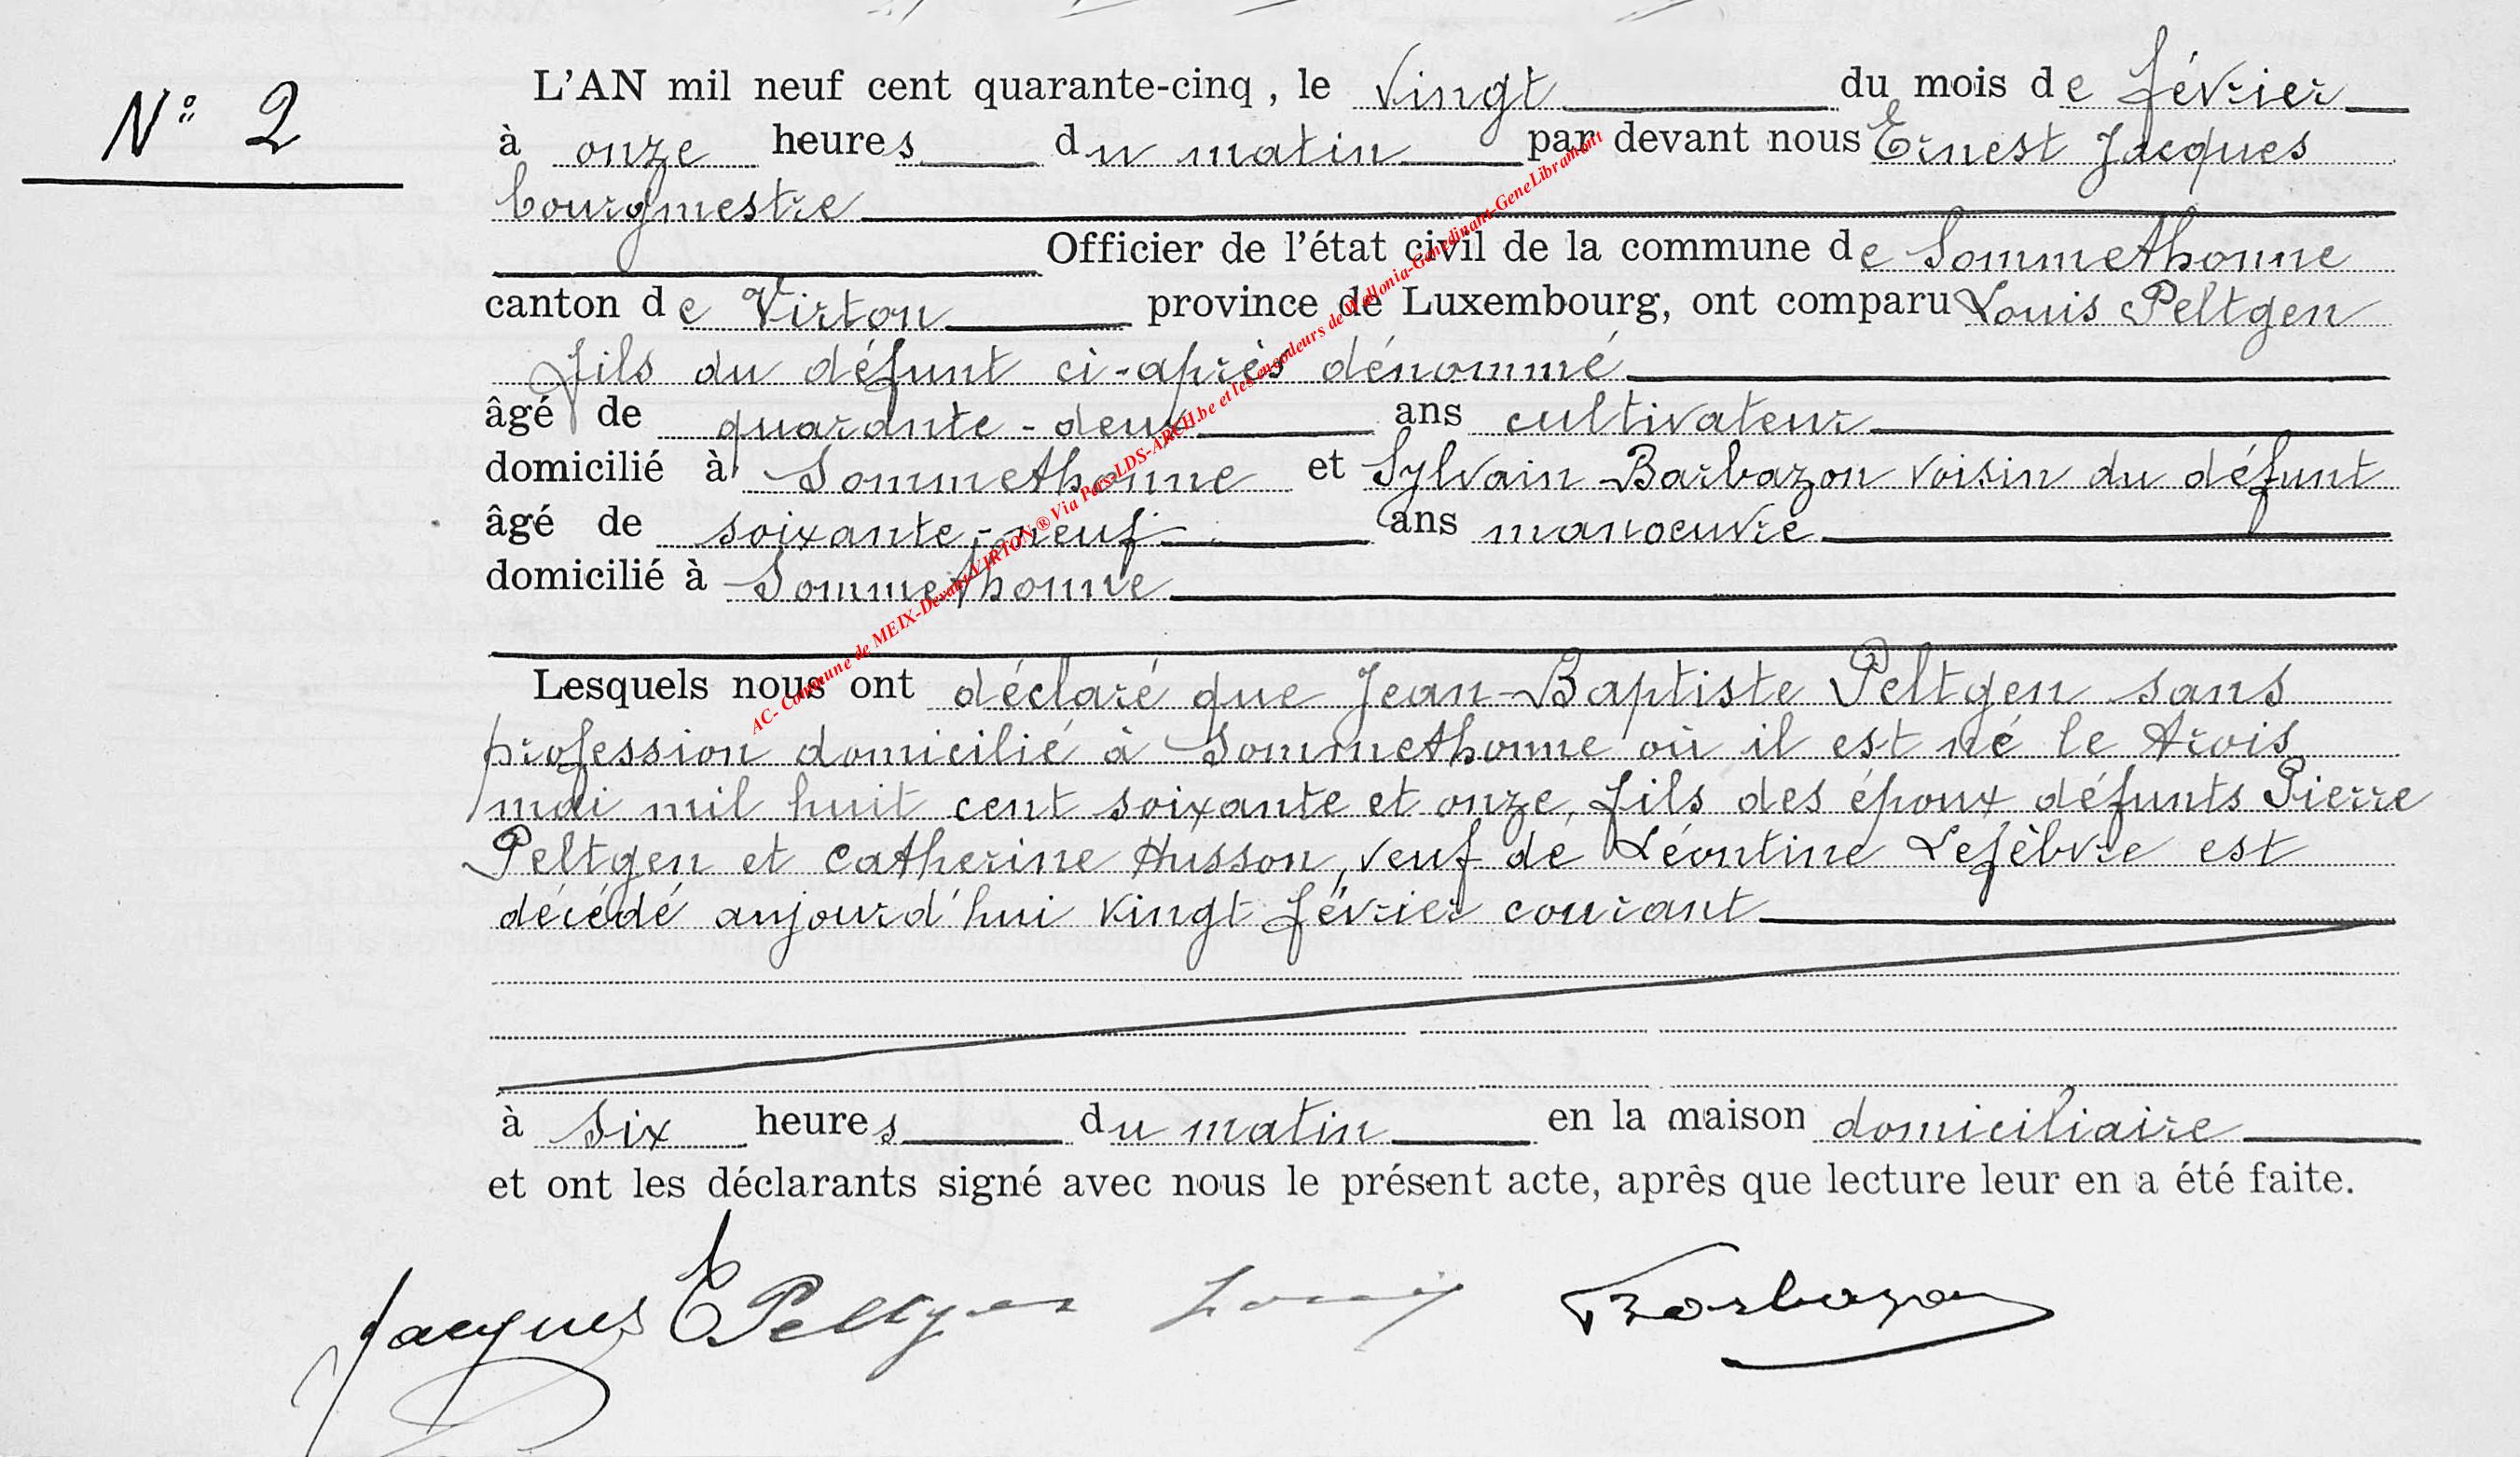 N° 2
L'AN mil neuf cent quarante-cinq, le vingt du mois de février
à onze heures du matin par devant nous Ernest Jacques
bourgmestre
Officier de l'état civil de la commune de Sommethonne
canton de Virton province de Luxembourg, ont comparu Louis Peltgen
fils du défunt ci-après dénommé
âgé de quarante-deux ans cultivateur
domicilié à Sommethonne et Sylvain Barbazon voisin du défunt
âgé de soixante-neuf ans manoeuvre
domicilié à Sommethonne
Lesquels nous ont déclaré que Jean-Baptiste Peltgen sans
profession domicilié à Sommethonne où il est né le trois
mai mil huit cent soixante et onze, fils des époux défunts Pierre
Peltgen et Catherine Husson, veuf de Léontine Lefèbvre est
décédé aujourd'hui vingt février courant
à six heures du matin en la maison domiciliaire
et ont les déclarants signé avec nous le présent acte, après que lecture leur en a été faite.
Jacques E Peltgen Louis Barbazon
AC- Commune de MEIX-Devant-VIRTON ® Via Pors-LDS-ARCH.be et les encodeurs de Wallonia-Genedinant-GeneLibramant